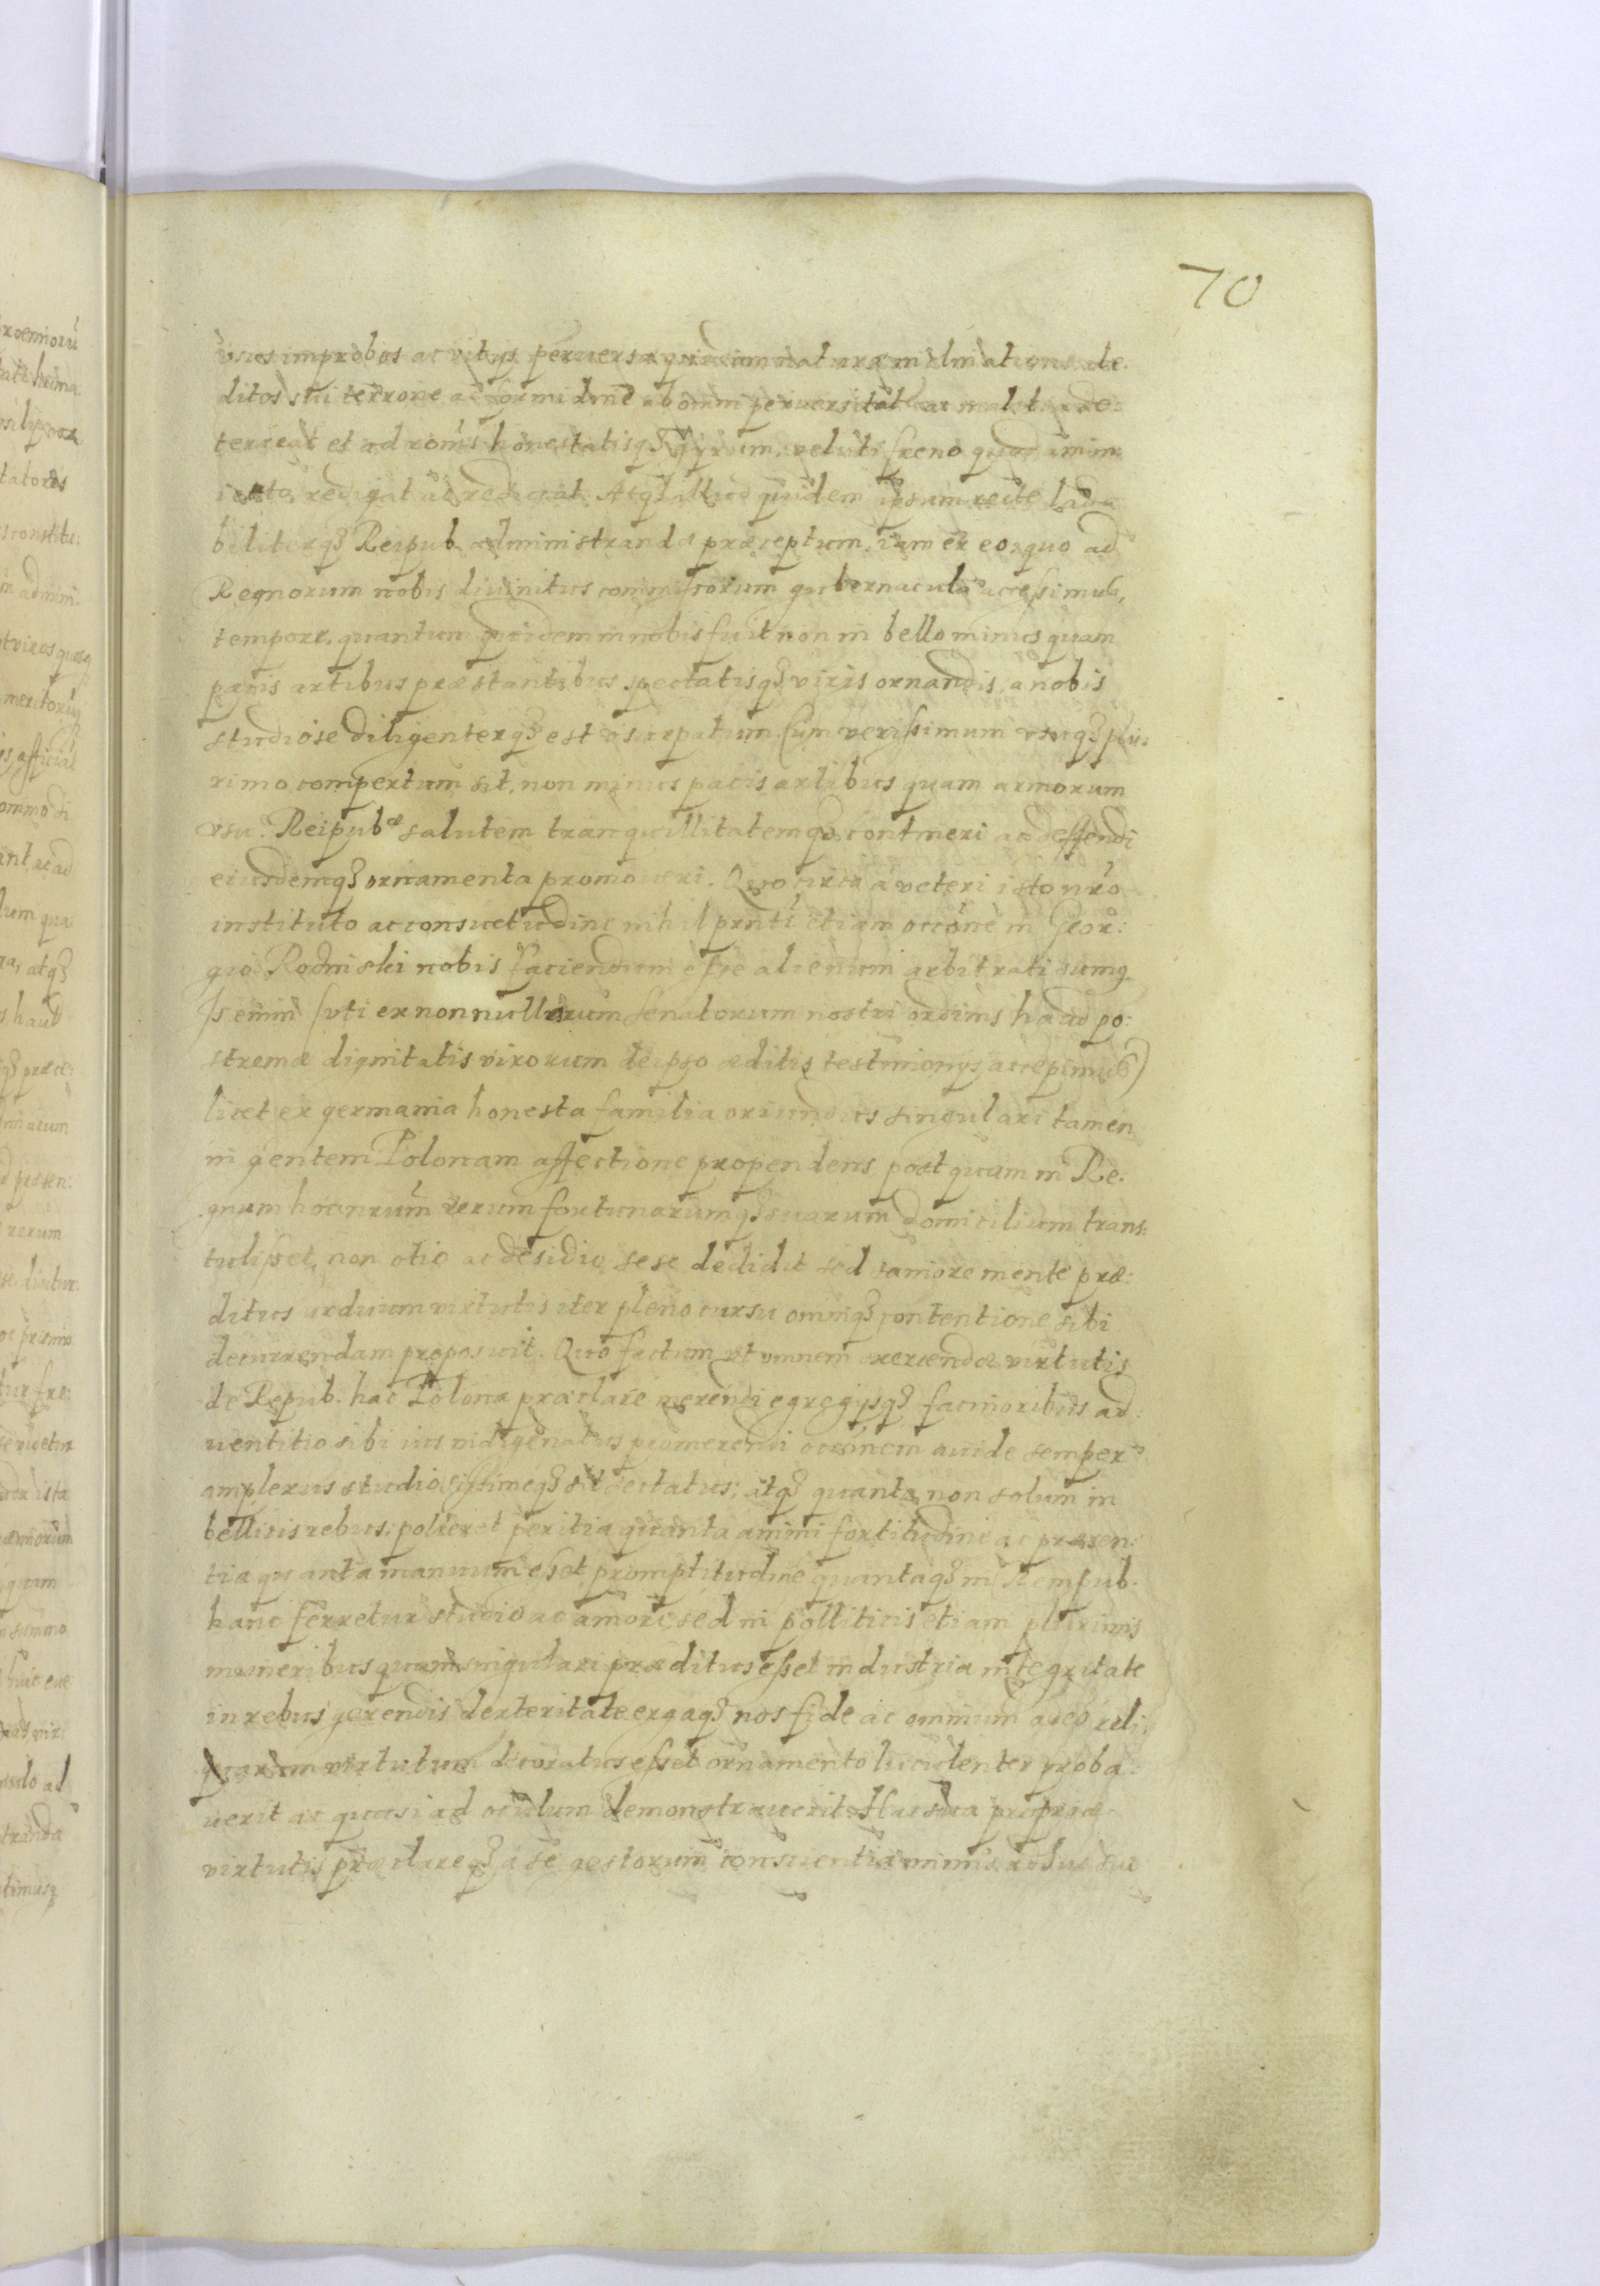 70
uiues improbos ac vitijs peruersa quadam naturae inclinatione de:
ditos sui terrore ac formidine ab omni peruersitate ac malitia de:
terreat et ad honestatisq₃ gyrum veluti freno quodam in
iecto redigat ac reducat. Atq₃ illud quidem ipsum recte lauda
biliterq₃ Reipub. administranda præceptum, iam ex eo, quo ad
Regnorum nobis diuinitus commissorum gubernacula accessimus,
tempore, quantum quidem in nobis fuit non in bello minus quam
pacis artibus præstantibus spectatisq₃ viris ornandis, a nobis
studiose diligenterq₃ est vsurpatum. Cum verissimum vsuq₃ plu:
rimo compertum sit, non minus pacis artibus quam armorum
vsu Reipubᵉ salutem tranquillitatemq₃ contineri ac deffendi
eiusdemq₃ ornamenta promoueri. Quocirca a veteri isto nr̃o
instituto ac consuetudine nihil prnti etiam occõne in Geor:
gio Rodniski nobis faciendum esse alienum arbitrati sumq
Is enim (vti ex nonnullorum Senatorum nostri ordinis haud po:
stremæ dignitatis virorum de ipso æditis testimonijs accepimus)
licet ex germania honesta familia oriundus singulari tamen
in gentem Polonam affectione propendens postquam in Re:
gnum hoc nrũm rerum fortunarumq₃ suarum domicilium trans:
tulisset, non otio ac desidiæ sese dedidit sed saniore mente præ:
ditus arduum virtutis iter pleno cursu omniq₃ contentione sibi
decurrendam proposuit. Quo factum vt omnem exercendæ virtutis
de Repub. hac Polona præclare merendi egregijsq₃ facinoribus ad:
uentitio sibi ius indigenatus promerendi occõnem auide semper
amplexus studiosissimeq₃ sit sectatus; atq₃ quanta non solum in
bellicis rebus polleret peritia quanta animi fortitudine ac præsen:
tia quanta manuum esset promptitudine quantaq₃ in Rempub.
hanc ferretur studio ac amore sed in polliticis etiam plurimis
muneribus quam singulari præditus esset industria integritate
in rebus gerendis dexteritate ergaq₃ nos fide ac omnium adeo reli:
quarum virtutum decoratus esset ornamento luculenter proba:
uerit ac quasi ad oculum demonstrauerit. Hac sua propriæ
virtutis præclareq₃ a se gestorum conscientia